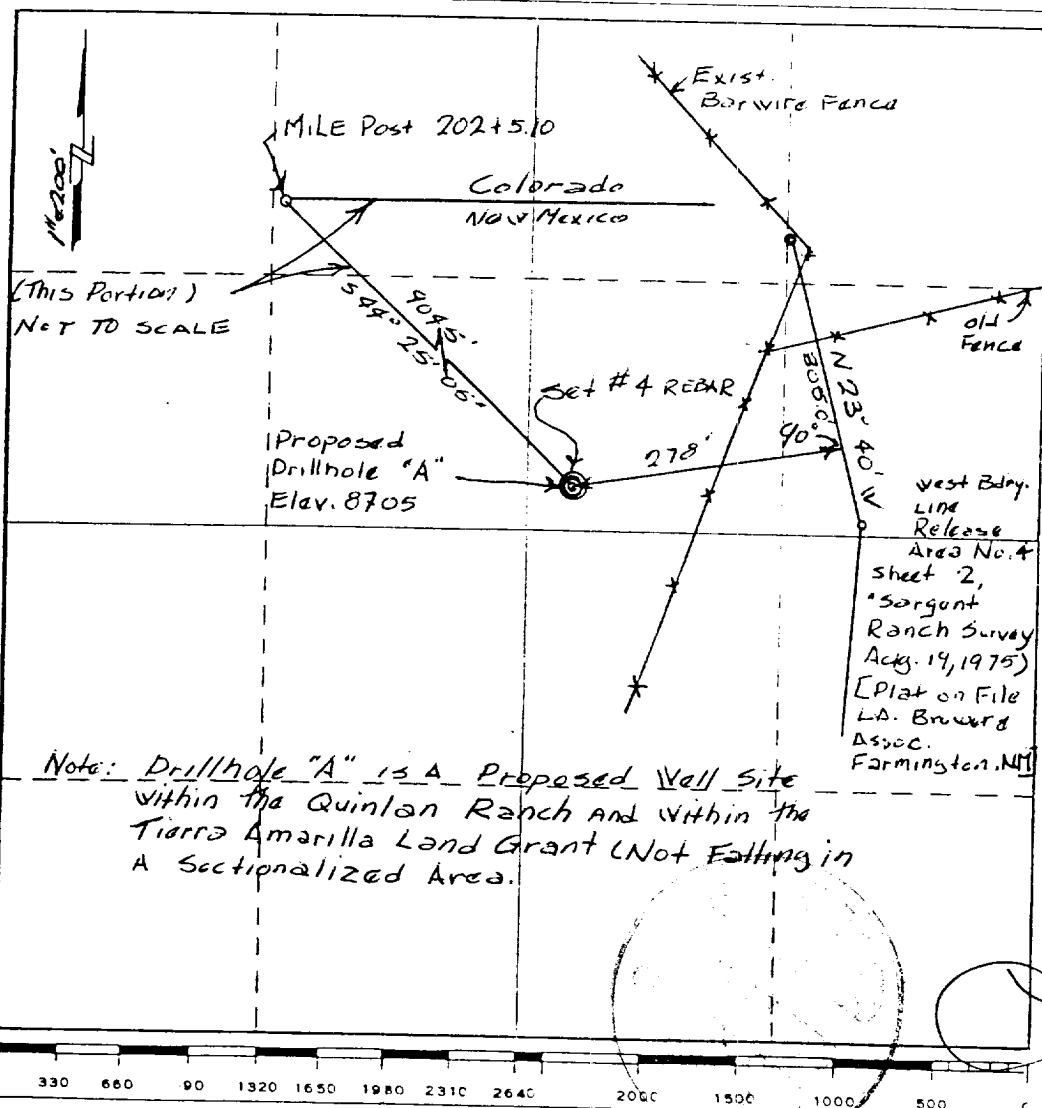 MILE Post 202+5.10
Exist.
Barwire Fence
1"=200'
Colorado
New Mexico
(This Portion)
NOT TO SCALE
S 44° 25' 06"
9045'
old
Fence
Set #4 REBAR
N 23° 40' W
278'
90°
Proposed
Drillhole "A"
Elev. 8705
West Bdry.
Line
Release
Area No. 4
Sheet 2,
"Sargent
Ranch Survey
Aug. 14, 1975)
[Plat on File
Assoc.
Farmington, NM]
Note: Drillhole "A" is A Proposed Well Site
within the Quinlan Ranch And within the
Tierra Amarilla Land Grant (Not Falling in
A Sectionalized Area.
330 660 90 1320 1650 1980 2310 2640 2000 1500 1000 500